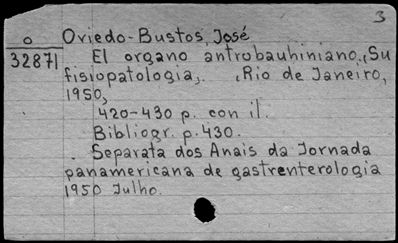 3
o Oviedo-Bustos, José
32871 El organo antrobauhiniano, Su
fisiopatologia,. , Rio de Janeiro,
1950,
420-430 p. con il.
Bibliogr. p. 430.
Separata dos Anais da Jornada
panamericana de gastrenterologia
1950 Julho.